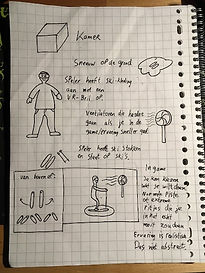 Kamer
Sneeuw op de grond
Speler heeft ski-kleding
aan met een
VR-Bril op.
Ventilatoren die harder
gaan als je in de
game/ervaring sneller gaat.
Speler heeft ski stokken
en staat op ski's.
van boven af:
In game
Je kan kiezen
wat je wilt doen.
Normale Piste
of extreme
Pistes die je
in het echt
nooit zou doen
Ervaring is realistisch
Dus niet abstract.